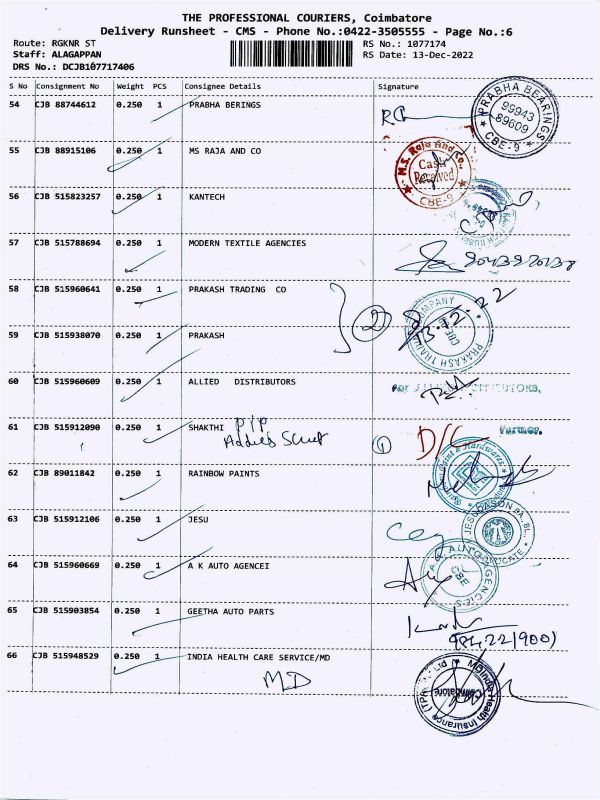 THE PROFESSIONAL COURIERS, Coimbatore
Delivery Runsheet - CMS - Phone No.:0422-3505555 - Page No.:6
Route: RGKNR ST
Staff: ALAGAPPAN
DRS No.: DCJB107717406
RS No.: 1077174
RS Date: 13-Dec-2022
S No Consignment No Weight PCS Consignee Details Signature
54 CJB 88744612 0.250 1 PRABHA BERINGS
PRABHA BEARINGS
99943
89609
CBE-9
55 CJB 88915106 0.250 1 MS RAJA AND CO
M.S. Raja And Co.,
Cash
Received
CBE-9
56 CJB 515823257 0.250 1 KANTECH
57 CJB 515788694 0.250 1 MODERN TEXTILE AGENCIES
58 CJB 515960641 0.250 1 PRAKASH TRADING CO
2
13-12-22
PRAKASH TRADING COMPANY
CBE
59 CJB 515938070 0.250 1 PRAKASH
60 CJB 515960609 0.250 1 ALLIED DISTRIBUTORS
For ALLIED DISTRIBUTORS,
Partner.
61 CJB 515912090 0.250 1 SHAKTHI
1
D/C
62 CJB 89011842 0.250 1 RAINBOW PAINTS
63 CJB 515912106 0.250 1 JESU
64 CJB 515960669 0.250 1 A K AUTO AGENCEI
65 CJB 515903854 0.250 1 GEETHA AUTO PARTS
66 CJB 515948529 0.250 1 INDIA HEALTH CARE SERVICE/MD
MD
Coimbatore